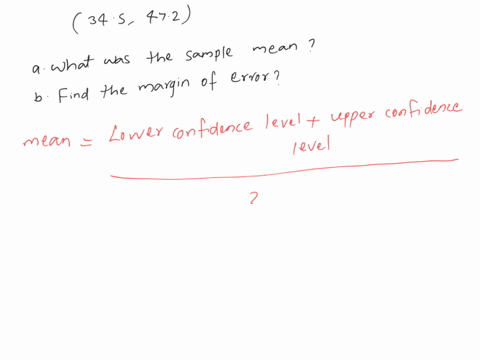 (34.5, 47.2)
a. What was the sample mean?
b. Find the margin of error?
mean = Lower confidence level + upper confidence
level
2